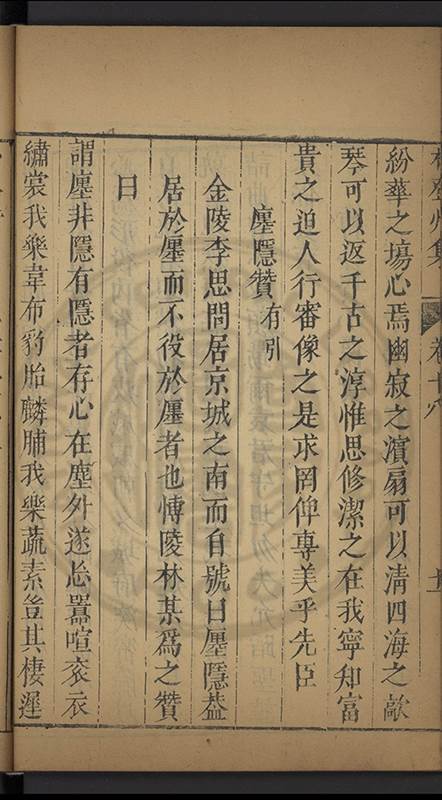 紛華之塲心焉幽寂之濱扇可以淸四海之歊
琴可以返千古之淳惟思修潔之在我寧知富
貴之迫人行審像之是求罔俾專美乎先臣
廛隱贊有引
金陵李思問居京城之南而自號曰廛隱葢
居於廛而不役於廛者也愽陵林某爲之贊
曰
謂廛非隱有隱者存心在塵外遂忘嚣喧衮衣
繡裳我樂韋布豹胎麟脯我樂蔬素豈其棲遲